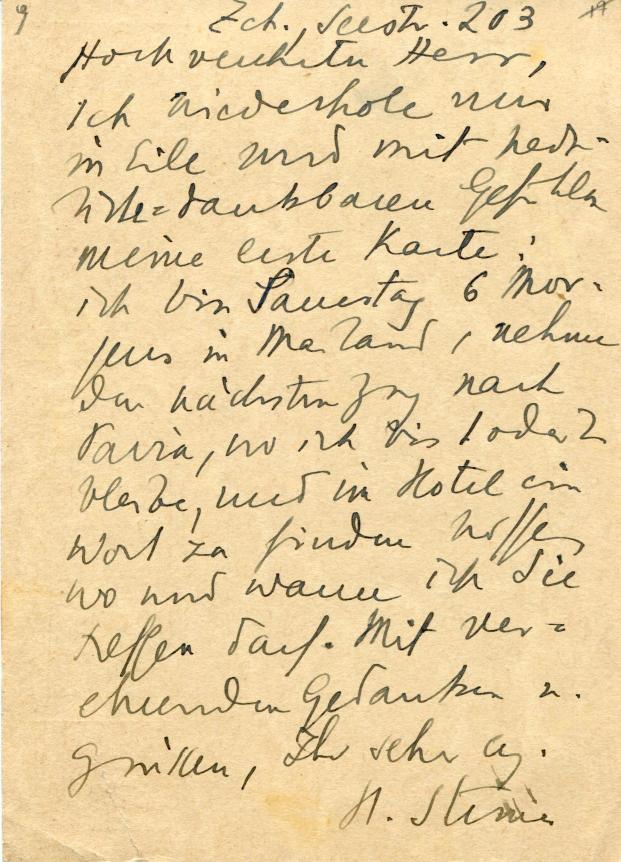 9
Zch., Seestr. 203
Hochverehrter Herr,
ich wiederhole nur
in Eile und mit
dankbaren Gefühlen
meine erste Karte:
ich bin Samstag 6 Mor-
gens in Mailand, nehme
den nächsten Zug nach
Pavia, wo ich bis 1 oder 2
bleibe, und im Hotel ein
Wort zu finden hoffe,
wo und wann ich Sie
treffen darf. Mit ver-
ehrenden Gedanken u.
Grüssen, Ihr sehr erg.
H.